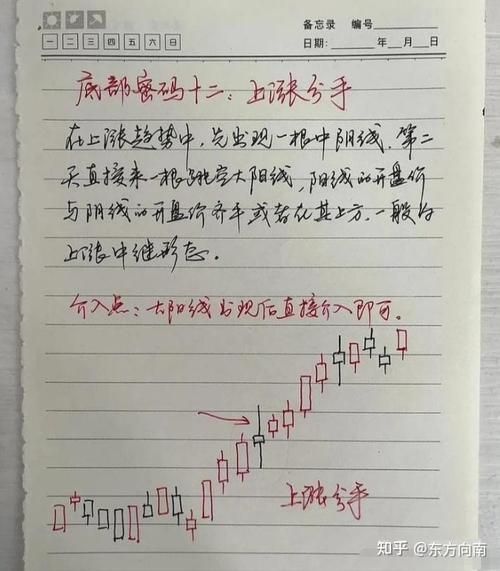 备忘录 编号
一 二 三 四 五 六 日
日期: 年 月 日
底部密码十二：上涨分手
在上涨趋势中，先出现一根中阴线，第二
天直接来一根跳空大阳线，阳线的开盘价
与阴线的开盘价齐平或者在其上方，一般为
上涨中继形态。
介入点：大阳线出现后直接介入即可。
上涨分手
知乎 @东方向南